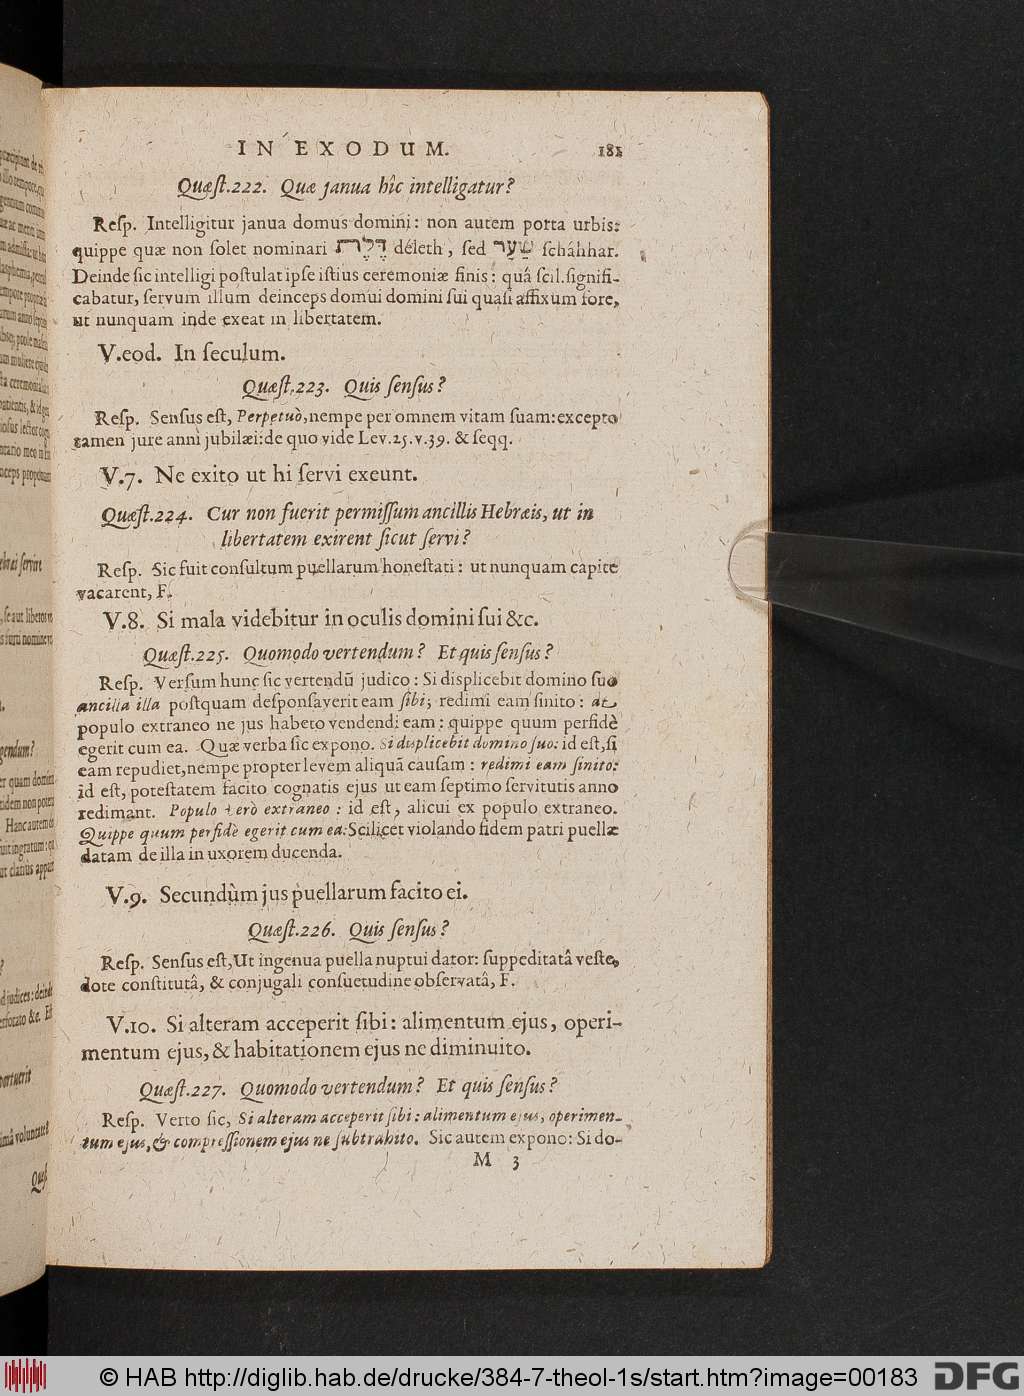 IN EXODUM. 181
Quæst.222. Quæ janua hîc intelligatur?
Resp. Intelligitur janua domus domini: non autem porta urbis:
quippe quæ non solet nominari דֶּלֶת déleth, sed שַׁעַר scháhhar.
Deinde sic intelligi postulat ipse istius ceremoniæ finis: quâ scil. signifi-
cabatur, servum illum deinceps domui domini sui quasi affixum fore,
ut nunquam inde exeat in libertatem.
V.eod. In seculum.
Quæst.223. Quis sensus?
Resp. Sensus est, Perpetuò, nempe per omnem vitam suam: excepto
tamen jure anni jubilæi: de quo vide Lev.25.v.39. & seqq.
V.7. Ne exito ut hi servi exeunt.
Quæst.224. Cur non fuerit permissum ancillis Hebræis, ut in
libertatem exirent sicut servi?
Resp. Sic fuit consultum puellarum honestati: ut nunquam capite
vacarent, F.
V.8. Si mala videbitur in oculis domini sui &c.
Quæst.225. Quomodo vertendum? Et quis sensus?
Resp. Versum hunc sic vertendũ judico: Si displicebit domino suo
ancilla illa postquam desponsaverit eam sibi; redimi eam sinito: at
populo extraneo ne jus habeto vendendi eam: quippe quum perfidè
egerit cum ea. Quæ verba sic expono. Si displicebit domino suo: id est, si
eam repudiet, nempe propter levem aliquã causam: redimi eam sinito:
id est, potestatem facito cognatis ejus ut eam septimo servitutis anno
redimant. Populo verò extraneo: id est, alicui ex populo extraneo.
Quippe quum perfidè egerit cum ea: Scilicet violando fidem patri puellæ
datam de illa in uxorem ducenda.
V.9. Secundùm jus puellarum facito ei.
Quæst.226. Quis sensus?
Resp. Sensus est, Ut ingenua puella nuptui dator: suppeditatâ veste,
dote constitutâ, & conjugali consuetudine observatâ, F.
V.10. Si alteram acceperit sibi: alimentum ejus, operi-
mentum ejus, & habitationem ejus ne diminuito.
Quæst.227. Quomodo vertendum? Et quis sensus?
Resp. Verto sic, Si alteram acceperit sibi: alimentum ejus, operimen-
tum ejus, & compressionem ejus ne subtrahito. Sic autem expono: Si do-
M 3
© HAB http://diglib.hab.de/drucke/384-7-theol-1s/start.htm?image=00183 DFG